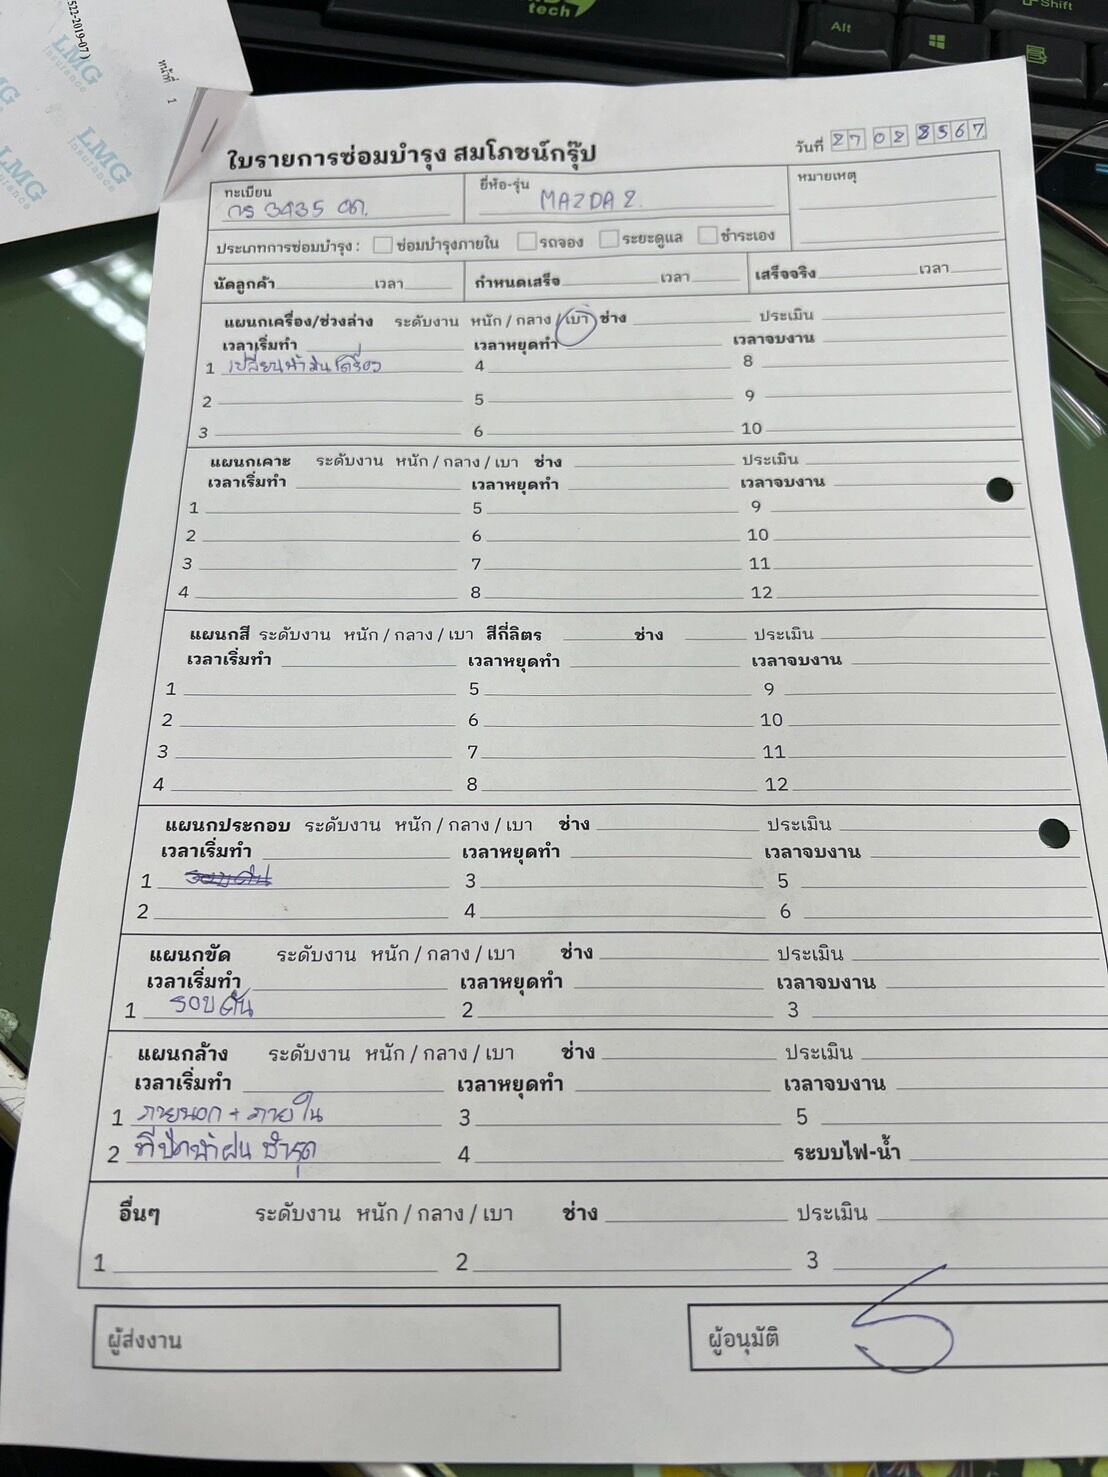 522-2019-07)
LMG
Insurance
หน้าที่ 1
tech
Alt
Shift
ใบรายการซ่อมบำรุง สมโภชน์กรุ๊ป
วันที่ 27 02 2567
ทะเบียน
กร 3435
ยี่ห้อ-รุ่น MAZDA 2.
หมายเหตุ
ประเภทการซ่อมบำรุง : ซ่อมบำรุงภายใน รถจอง ระยะดูแล ชำระเอง
นัดลูกค้า เวลา กำหนดเสร็จ เวลา เสร็จจริง เวลา
แผนกเครื่อง/ช่วงล่าง ระดับงาน หนัก / กลาง / เบา ช่าง ประเมิน
เวลาเริ่มทำ เวลาหยุดทำ เวลาจบงาน
1 เปลี่ยนน้ำมันเครื่อง 4 8
2 5 9
3 6 10
แผนกเคาะ ระดับงาน หนัก / กลาง / เบา ช่าง ประเมิน
เวลาเริ่มทำ เวลาหยุดทำ เวลาจบงาน
1 5 9
2 6 10
3 7 11
4 8 12
แผนกสี ระดับงาน หนัก / กลาง / เบา สีกี่ลิตร ช่าง ประเมิน
เวลาเริ่มทำ เวลาหยุดทำ เวลาจบงาน
1 5 9
2 6 10
3 7 11
4 8 12
แผนกประกอบ ระดับงาน หนัก / กลาง / เบา ช่าง ประเมิน
เวลาเริ่มทำ เวลาหยุดทำ เวลาจบงาน
1 3 5
2 4 6
แผนกขัด ระดับงาน หนัก / กลาง / เบา ช่าง ประเมิน
เวลาเริ่มทำ เวลาหยุดทำ เวลาจบงาน
1 รอบคัน 2 3
แผนกล้าง ระดับงาน หนัก / กลาง / เบา ช่าง ประเมิน
เวลาเริ่มทำ เวลาหยุดทำ เวลาจบงาน
1 ภายนอก + ภายใน 3 5
2 ที่ปัดน้ำฝน ชำรุด 4 ระบบไฟ-น้ำ
อื่นๆ ระดับงาน หนัก / กลาง / เบา ช่าง ประเมิน
1 2 3
ผู้ส่งงาน ผู้อนุมัติ